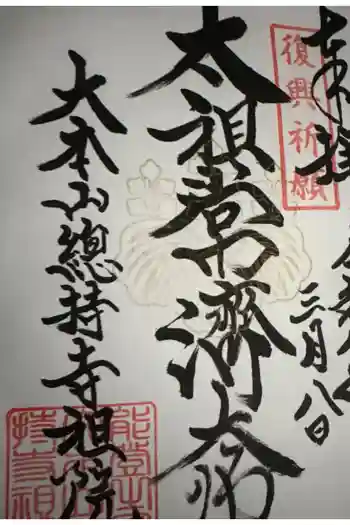 奉拝
復興祈願
三月八日
太祖常済大師
大本山總持寺祖院